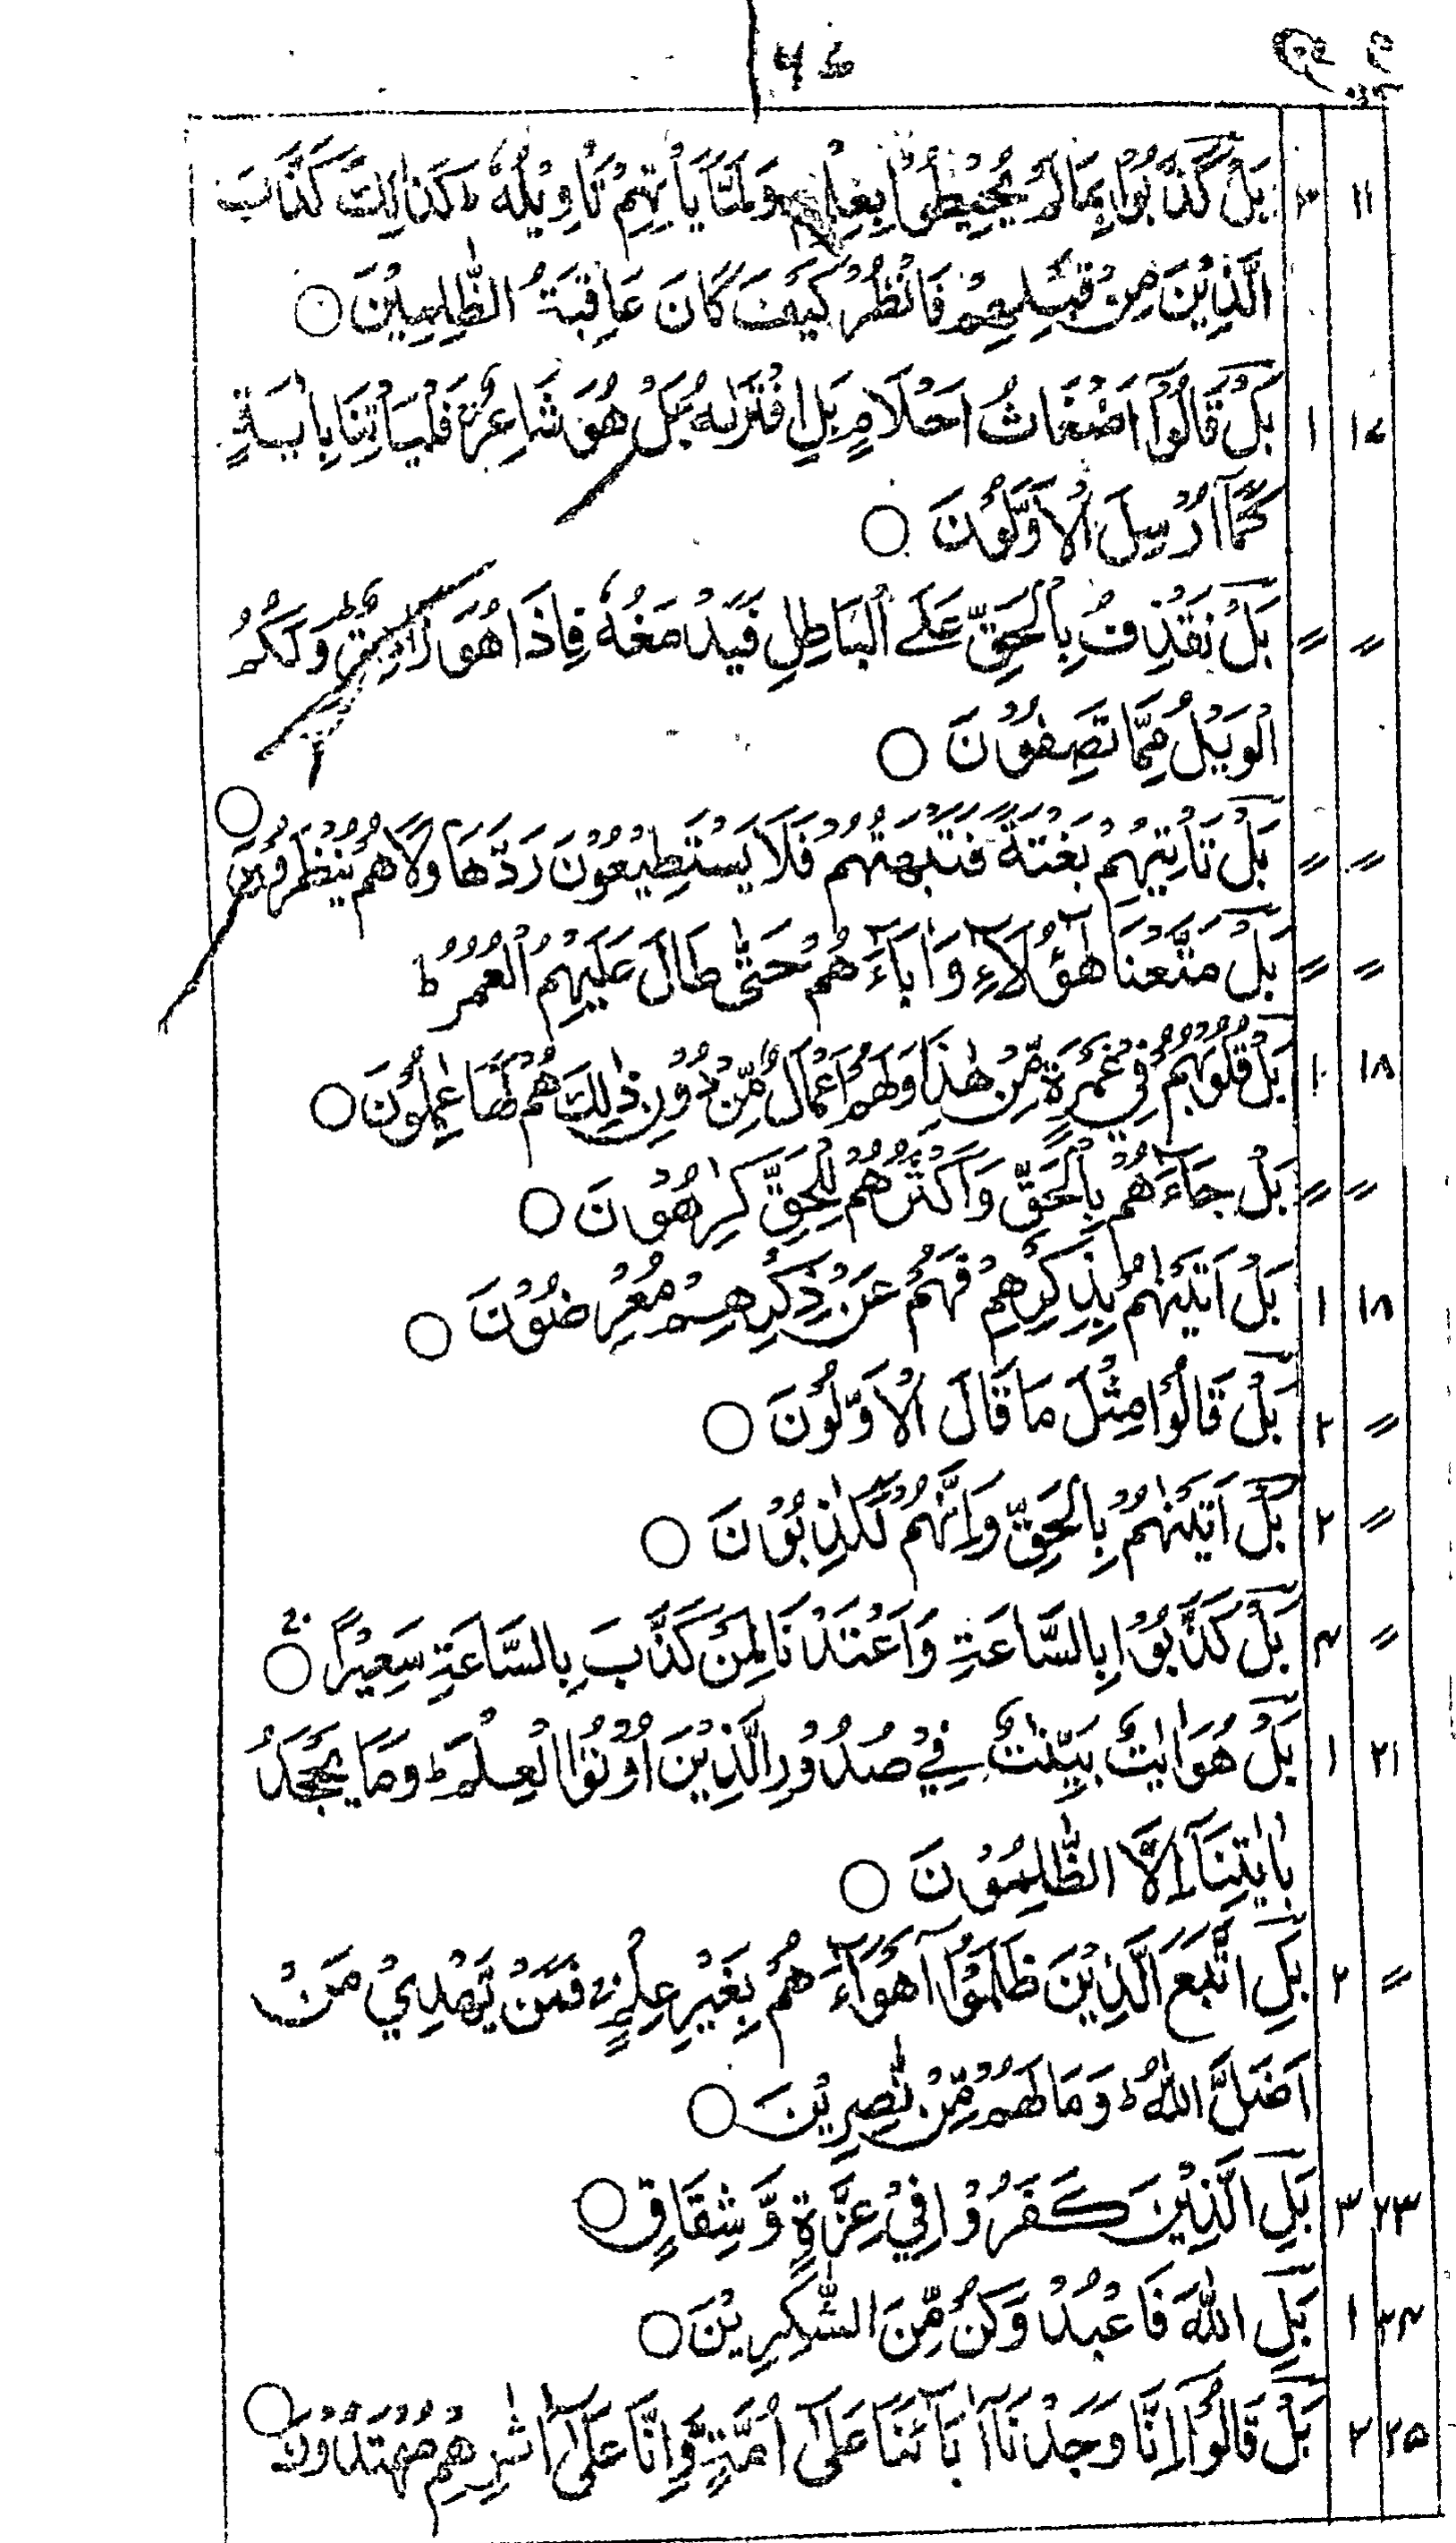 ۱۱ ۳ بَلْ كَذَّبُوْا بِمَا لَمْ يُحِيْطُوْا بِعِلْمِهٖ وَلَمَّا يَاْتِهِمْ تَاْوِيْلُهٗ ؕ كَذٰلِكَ كَذَّبَ
الَّذِيْنَ مِنْ قَبْلِهِمْ فَانْظُرْ كَيْفَ كَانَ عَاقِبَةُ الظّٰلِمِيْنَ ○
۱۷ ۱ بَلْ قَالُوْٓا اَضْغَاثُ اَحْلَامٍ بَلِ افْتَرٰىهُ بَلْ هُوَ شَاعِرٌ فَلْيَاْتِنَا بِاٰيَةٍ
كَمَآ اُرْسِلَ الْاَوَّلُوْنَ ○
〃 〃 بَلْ نَقْذِفُ بِالْحَقِّ عَلَے الْبَاطِلِ فَيَدْمَغُهٗ فَاِذَا هُوَ زَاهِقٌ ؕ وَلَكُمُ
الْوَيْلُ مِمَّا تَصِفُوْنَ ○
〃 〃 بَلْ تَاْتِيْهِمْ بَغْتَةً فَتَبْهَتُهُمْ فَلَا يَسْتَطِيْعُوْنَ رَدَّهَا وَلَا هُمْ يُنْظَرُوْنَ ○
〃 〃 بَلْ مَتَّعْنَا هٰٓؤُلَآءِ وَاٰبَآءَهُمْ حَتّٰى طَالَ عَلَيْهِمُ الْعُمُرُ ؕ
۱۸ ۱ بَلْ قُلُوْبُهُمْ فِيْ غَمْرَةٍ مِّنْ هٰذَا وَلَهُمْ اَعْمَالٌ مِّنْ دُوْنِ ذٰلِكَ هُمْ لَهَا عٰمِلُوْنَ ○
〃 〃 بَلْ جَآءَهُمْ بِالْحَقِّ وَاَكْثَرُهُمْ لِلْحَقِّ كٰرِهُوْنَ ○
۱۸ ۱ بَلْ اَتَيْنٰهُمْ بِذِكْرِهِمْ فَهُمْ عَنْ ذِكْرِهِمْ مُّعْرِضُوْنَ ○
〃 ۲ بَلْ قَالُوْا مِثْلَ مَا قَالَ الْاَوَّلُوْنَ ○
〃 ۲ بَلْ اَتَيْنٰهُمْ بِالْحَقِّ وَاِنَّهُمْ لَكٰذِبُوْنَ ○
〃 ۴ بَلْ كَذَّبُوْا بِالسَّاعَةِ وَاَعْتَدْنَا لِمَنْ كَذَّبَ بِالسَّاعَةِ سَعِيْرًا ○
۲۱ ۱ بَلْ هُوَ اٰيٰتٌ بَيِّنٰتٌ فِيْ صُدُوْرِ الَّذِيْنَ اُوْتُوا الْعِلْمَ ؕ وَمَا يَجْحَدُ
بِاٰيٰتِنَآ اِلَّا الظّٰلِمُوْنَ ○
〃 ۲ بَلِ اتَّبَعَ الَّذِيْنَ ظَلَمُوْٓا اَهْوَآءَهُمْ بِغَيْرِ عِلْمٍ فَمَنْ يَّهْدِيْ مَنْ
اَضَلَّ اللّٰهُ ؕ وَمَا لَهُمْ مِّنْ نّٰصِرِيْنَ ○
۲۳ ۳ بَلِ الَّذِيْنَ كَفَرُوْا فِيْ عِزَّةٍ وَّشِقَاقٍ ○
۲۴ ۱ بَلِ اللّٰهَ فَاعْبُدْ وَكُنْ مِّنَ الشّٰكِرِيْنَ ○
۲۵ ۲ بَلْ قَالُوْٓا اِنَّا وَجَدْنَآ اٰبَآئَنَا عَلٰٓى اُمَّةٍ وَّاِنَّا عَلٰٓى اٰثٰرِهِمْ مُّهْتَدُوْنَ ○